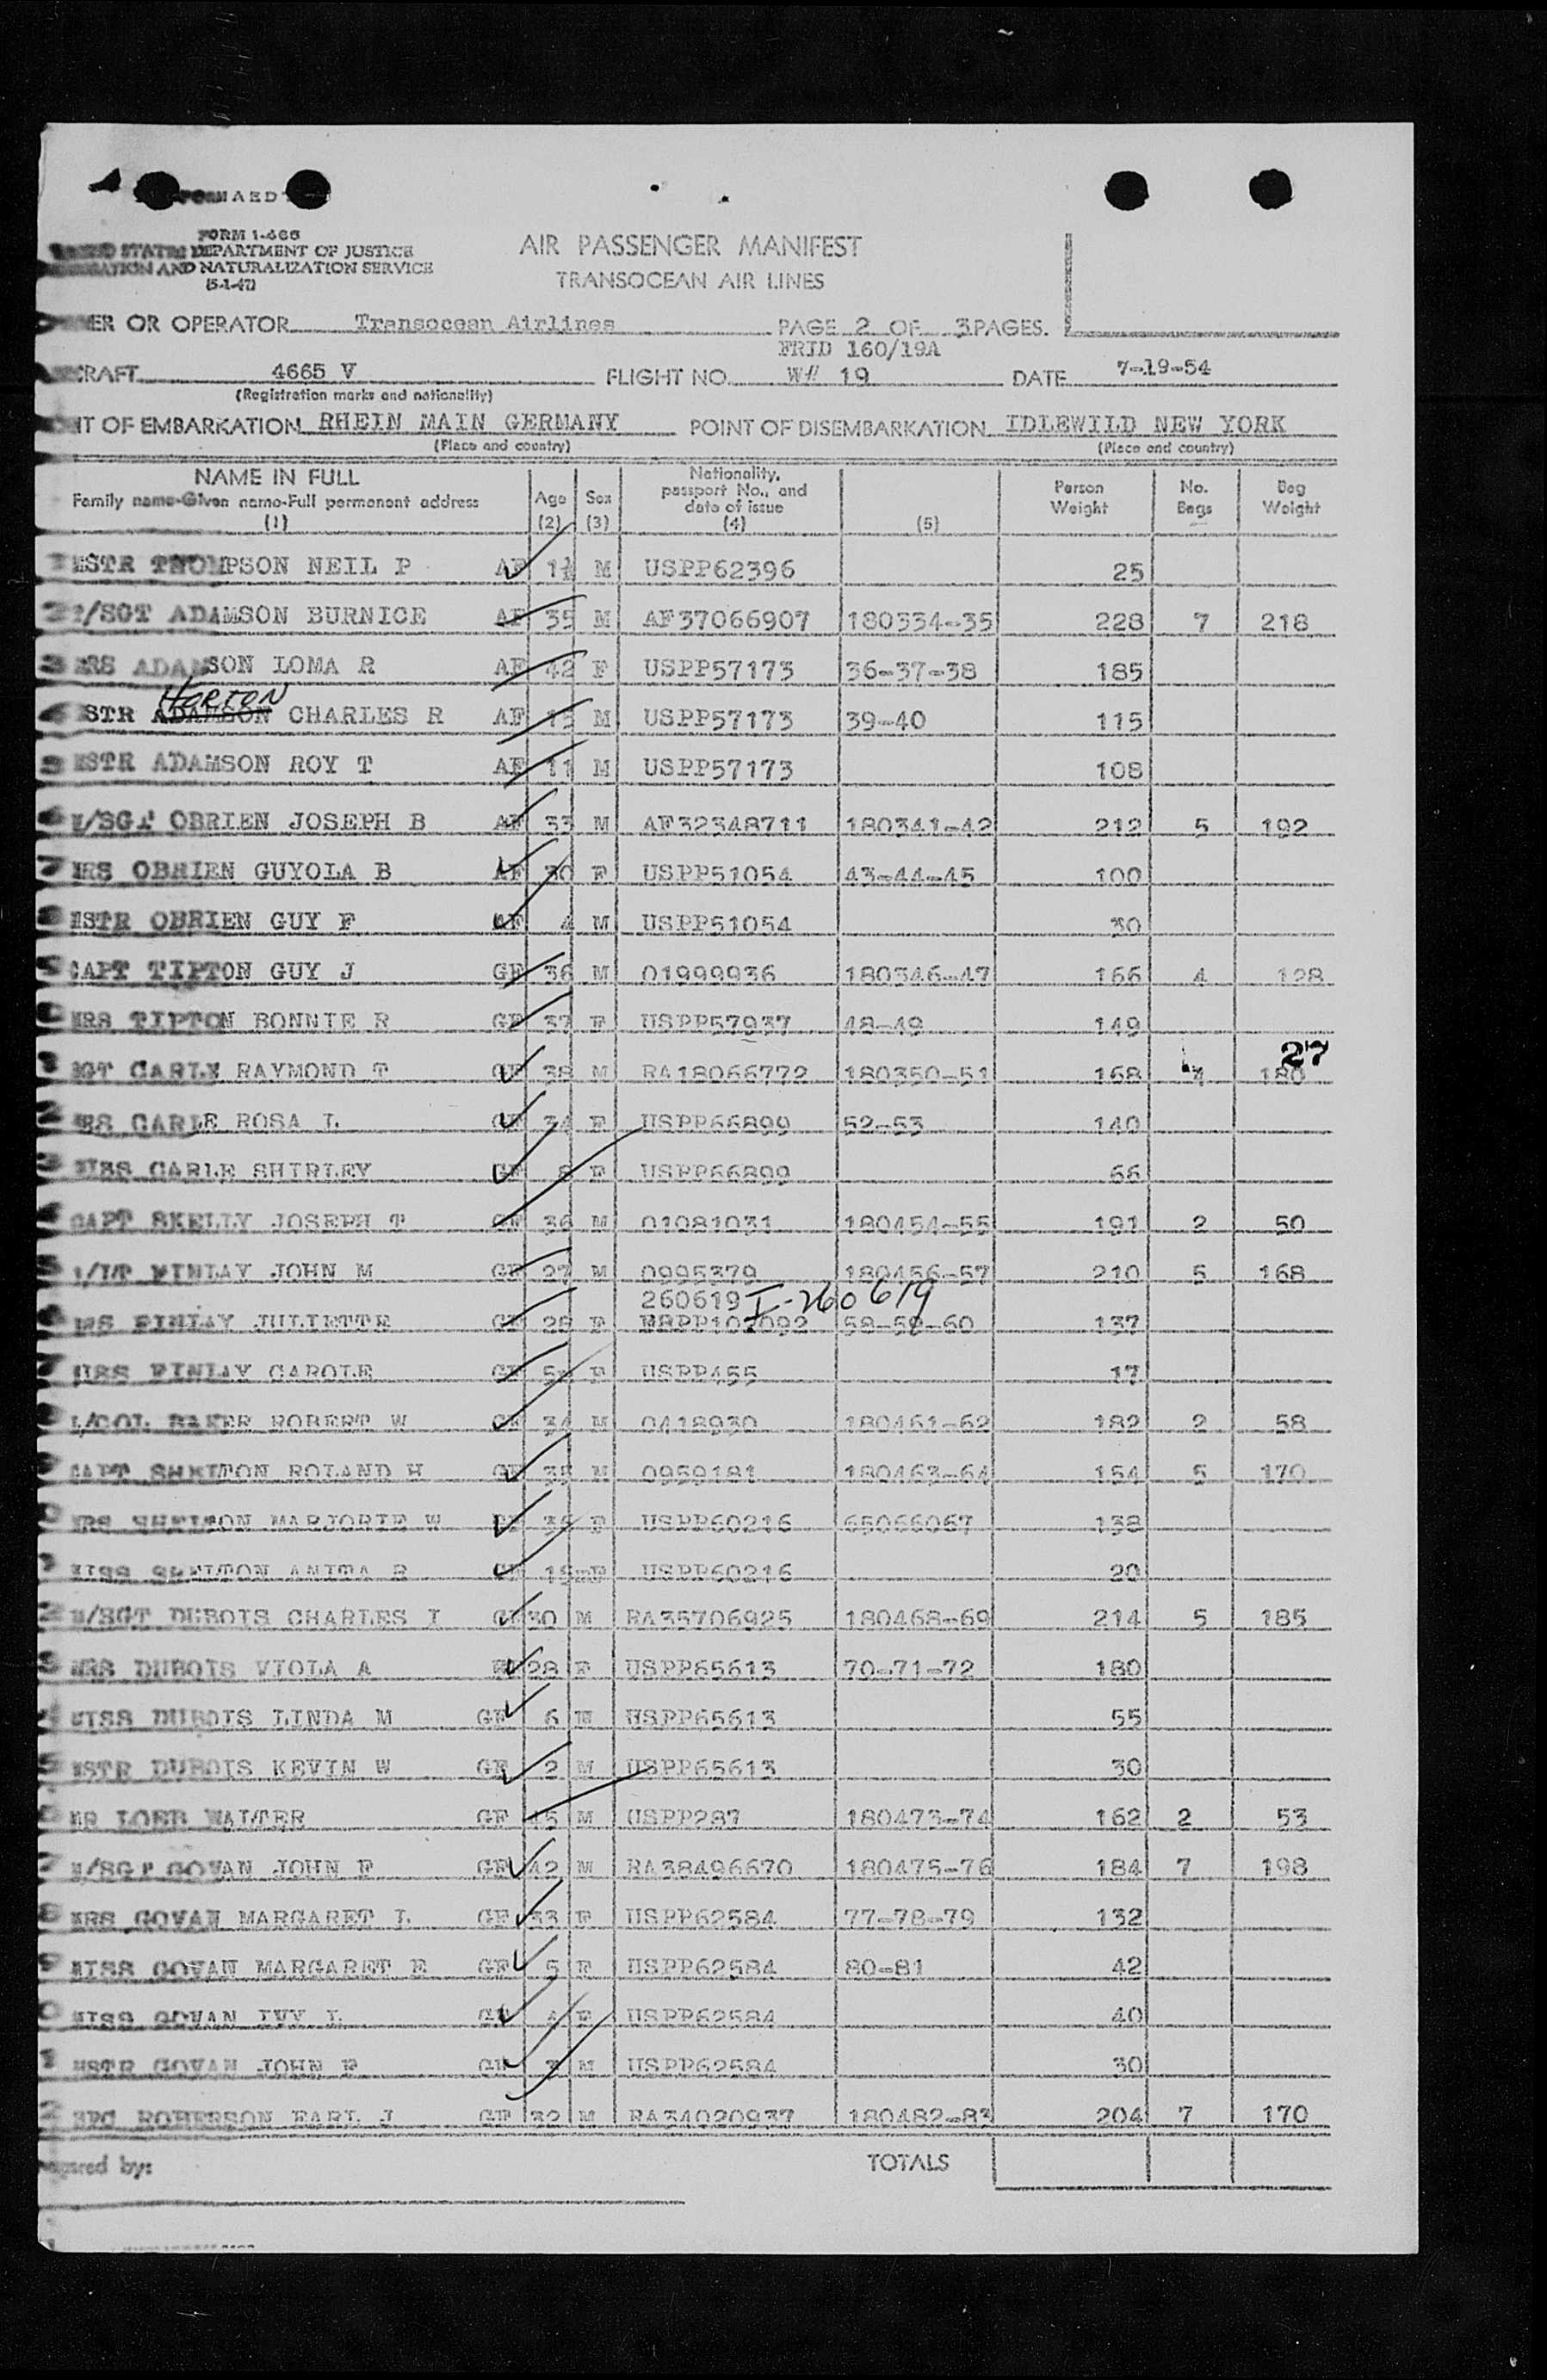 FORM I-466
UNITED STATES DEPARTMENT OF JUSTICE
AND NATURALIZATION SERVICE
(5-1-47)
AIR PASSENGER MANIFEST
TRANSOCEAN AIR LINES
OWNER OR OPERATOR Transocean Airlines PAGE 2 OF 3 PAGES.
FRID 160/19A
AIRCRAFT 4665 V FLIGHT NO. W# 19 DATE 7-19-54
(Registration marks and nationality)
POINT OF EMBARKATION RHEIN MAIN GERMANY POINT OF DISEMBARKATION IDLEWILD NEW YORK
(Place and country) (Place and country)
NAME IN FULL Age Sex Nationality, passport No., and date of issue Person Weight No. Bags Bag Weight
Family name-Given name-Full permanent address
(1) (2) (3) (4) (5)
MSTR THOMPSON NEIL P AF 1½ M USPP62396 25
/SGT ADAMSON BURNICE AF 35 M AF37066907 180334-35 228 7 218
3 MRS ADAMSON LOMA R AF 42 F USPP57173 36-37-38 185
HORTON
4 MSTR ADAMSON CHARLES R AF 15 M USPP57173 39-40 115
5 MSTR ADAMSON ROY T AF 11 M USPP57173 108
6 M/SGT OBRIEN JOSEPH B AF 33 M AF32348711 180341-42 212 5 192
7 MRS OBRIEN GUYOLA B AF 30 F USPP51054 43-44-45 100
8 MSTR OBRIEN GUY F AF 4 M USPP51054 30
9 CAPT TIPTON GUY J GF 36 M 01999936 180346-47 166 4 128
0 MRS TIPTON BONNIE R GF 37 F USPP57937 48-49 149
27
1 SGT CARLE RAYMOND T GF 38 M RA18066772 180350-51 168 4 180
2 MRS CARLE ROSA L GF 34 F USPP66899 52-53 140
3 MISS CARLE SHIRLEY GF 8 F USPP66899 66
4 CAPT SKELLY JOSEPH T GF 36 M 01081031 180454-55 191 2 50
5 1/LT FINLAY JOHN M GF 27 M 0995379 180456-57 210 5 168
260619 I-260619
6 MRS FINLAY JULIETTE GF 28 F 58-59-60 137
7 MISS FINLAY CAROLE GF F USPP455 17
8 L/COL BAKER ROBERT W GF 34 M 0418930 180461-62 182 2 58
9 CAPT SHELTON ROLAND H GF 35 M 0959181 180463-64 154 5 170
0 MRS SHELTON MARJORIE W GF F USPP60216 65066067 138
1 MISS SHELTON ANITA R GF F USPP60216 20
2 M/SGT DUBOIS CHARLES I GF 30 M RA35706925 180468-69 214 5 185
3 MRS DUBOIS VIOLA A 28 F USPP65613 70-71-72 180
4 MISS DUBOIS LINDA M GF 6 USPP65613 55
5 MSTR DUBOIS KEVIN W GF 2 M USPP65613 30
6 MR LOEB WALTER GF M USPP287 180473-74 162 2 53
7 M/SGT GOVAN JOHN F GF 42 M RA38496670 180475-76 184 7 198
8 MRS GOVAN MARGARET L GF 33 F USPP62584 77-78-79 132
9 MISS GOVAN MARGARET E GF 5 F USPP62584 80-81 42
0 MISS GOVAN IVY L GF 4 F USPP62584 40
1 MSTR GOVAN JOHN F GF 3 M USPP62584 30
2 ROBERSON EARL J GF 32 M RA34020937 180482-83 204 7 170
Prepared by: TOTALS